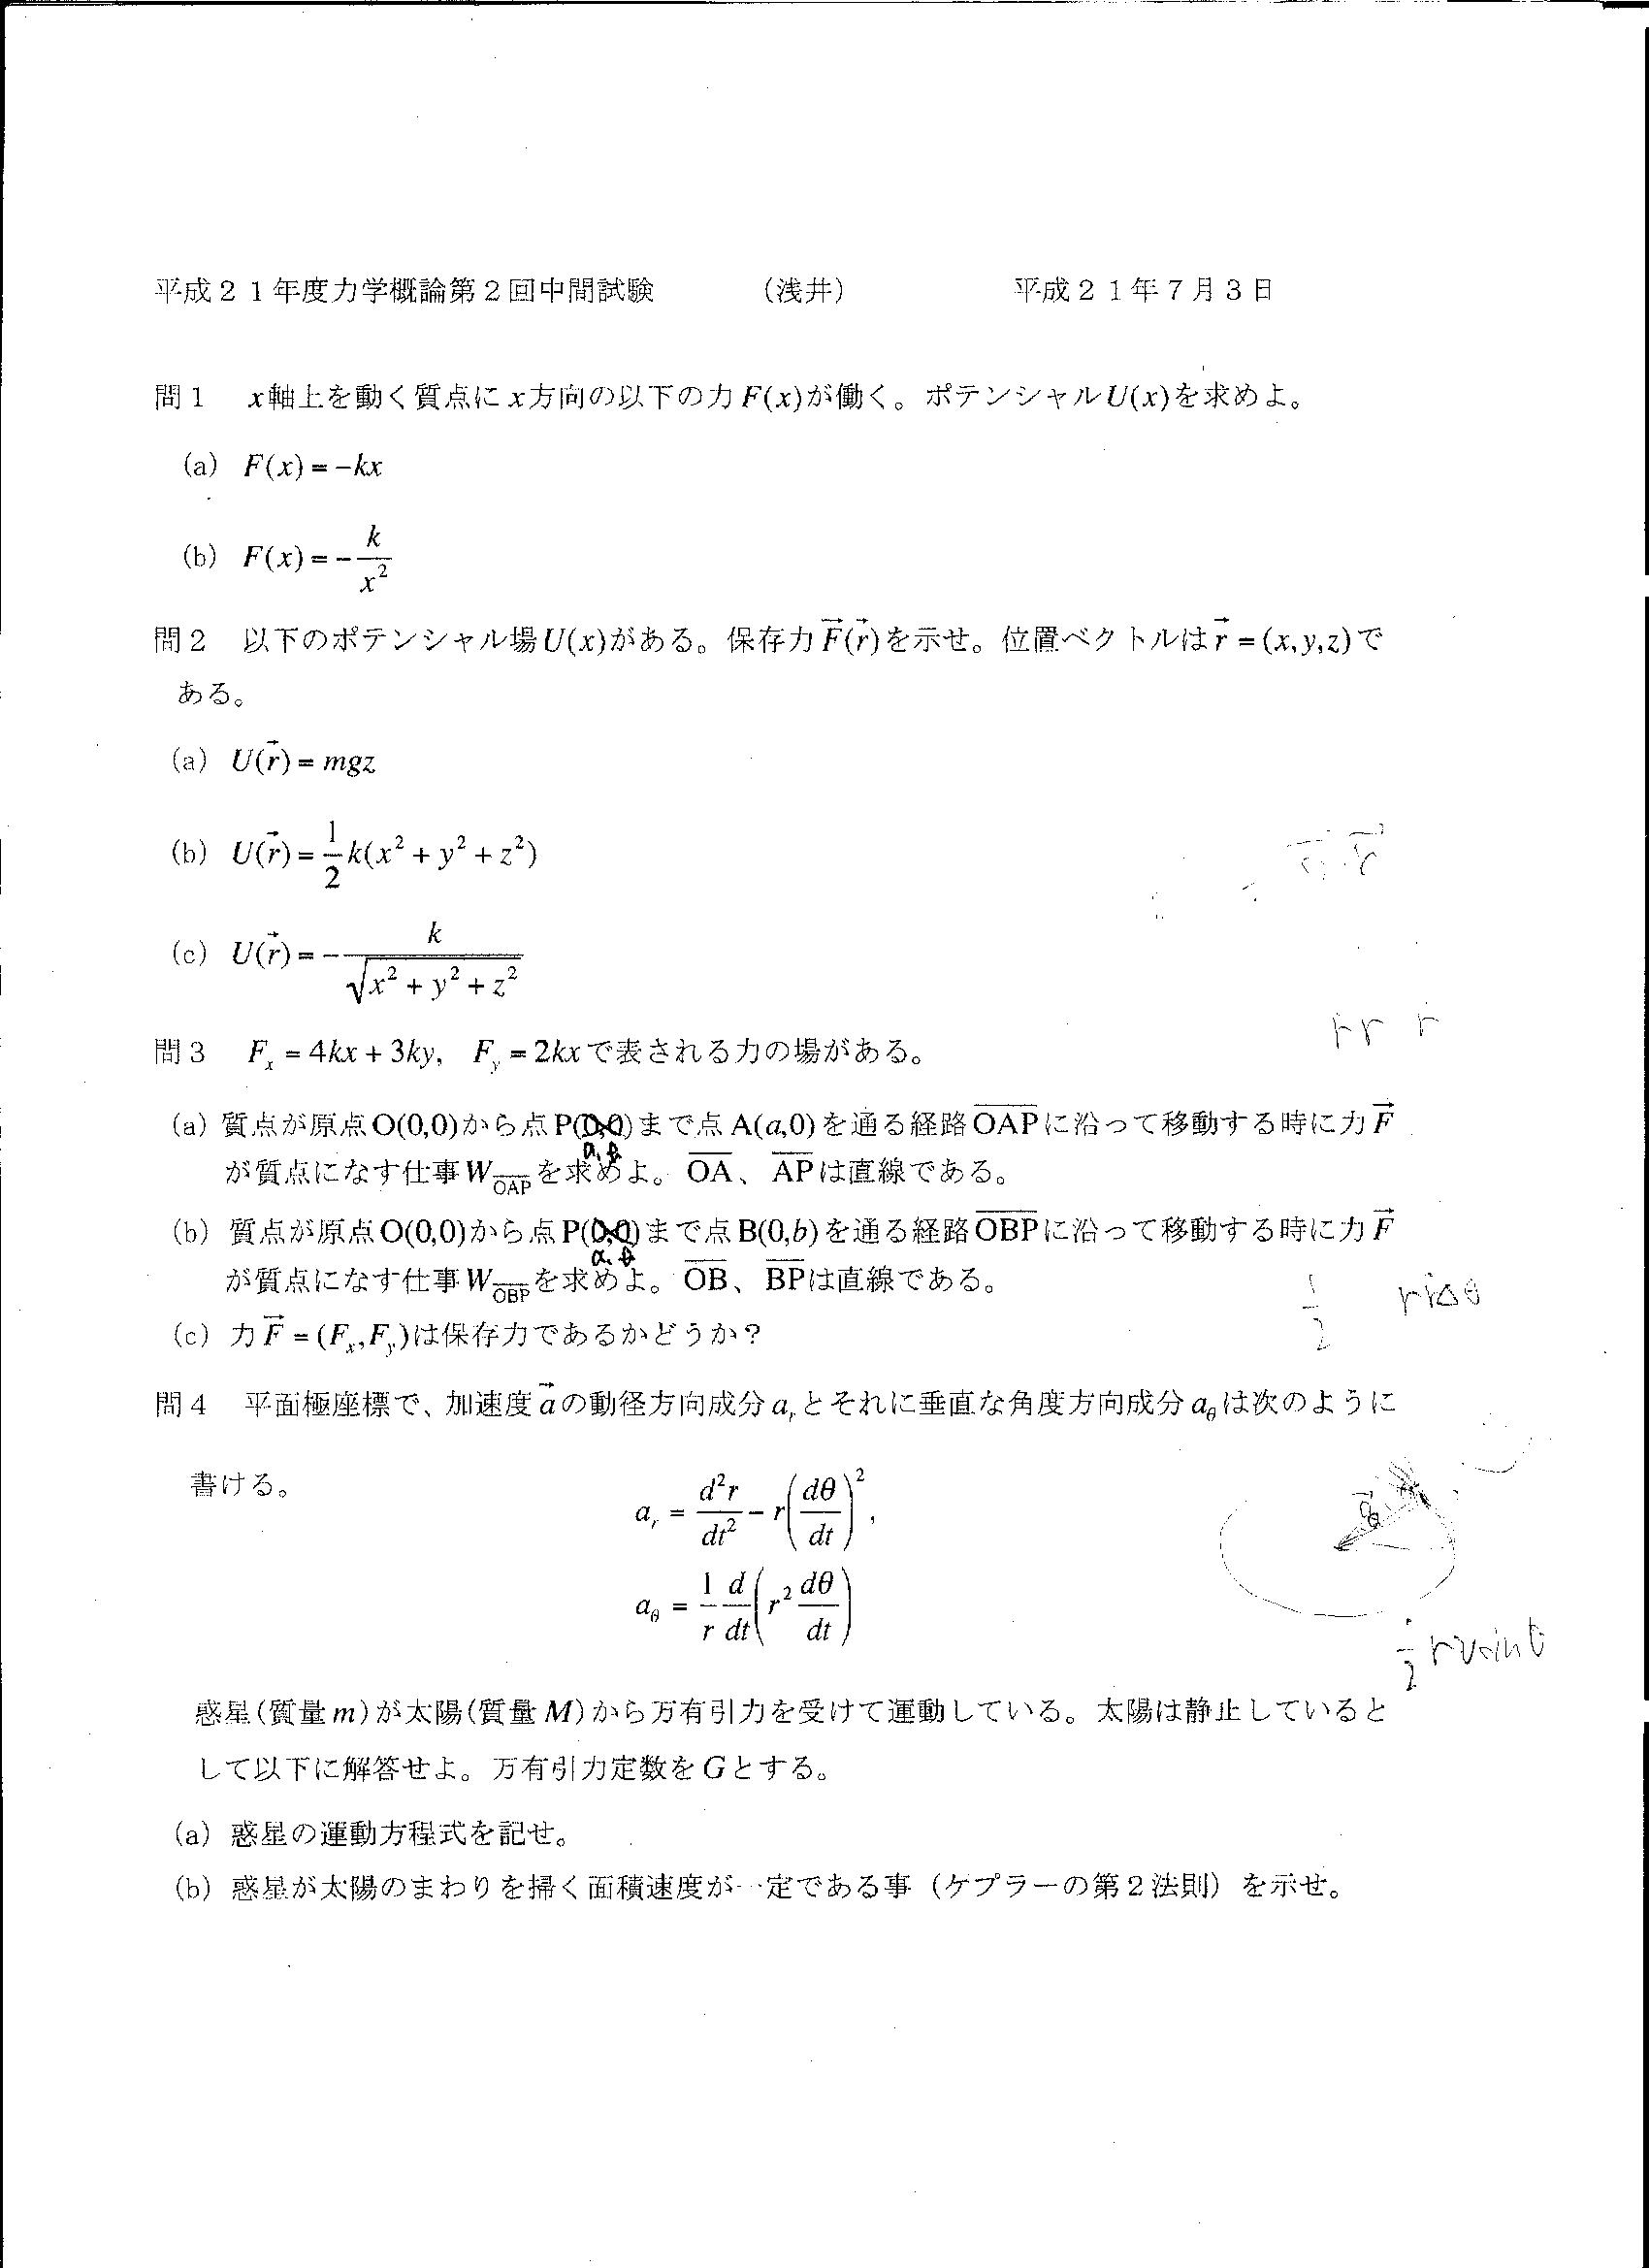 平成21年度力学概論第2回中間試験　(浅井)　平成21年7月3日
問1　x軸上を動く質点にx方向の以下の力F(x)が働く。ポテンシャルU(x)を求めよ。
(a) F(x) = −kx
(b) F(x) = −k/x²
問2　以下のポテンシャル場U(x)がある。保存力F⃗(r⃗)を示せ。位置ベクトルはr⃗ = (x,y,z)で
ある。
(a) U(r⃗) = mgz
(b) U(r⃗) = 1/2 k(x² + y² + z²)
(c) U(r⃗) = −k/√(x² + y² + z²)
問3　F_x = 4kx + 3ky,　F_y = 2kxで表される力の場がある。
(a) 質点が原点O(0,0)から点P(a,b)まで点A(a,0)を通る経路OAPに沿って移動する時に力F⃗
が質点になす仕事W_OAPを求めよ。OA、APは直線である。
(b) 質点が原点O(0,0)から点P(a,b)まで点B(0,b)を通る経路OBPに沿って移動する時に力F⃗
が質点になす仕事W_OBPを求めよ。OB、BPは直線である。
(c) 力F⃗ = (F_x,F_y)は保存力であるかどうか?
問4　平面極座標で、加速度a⃗の動径方向成分a_rとそれに垂直な角度方向成分a_θは次のように
書ける。
a_r = d²r/dt² − r(dθ/dt)²,
a_θ = 1/r d/dt(r² dθ/dt)
惑星(質量m)が太陽(質量M)から万有引力を受けて運動している。太陽は静止していると
して以下に解答せよ。万有引力定数をGとする。
(a) 惑星の運動方程式を記せ。
(b) 惑星が太陽のまわりを掃く面積速度が一定である事(ケプラーの第2法則)を示せ。